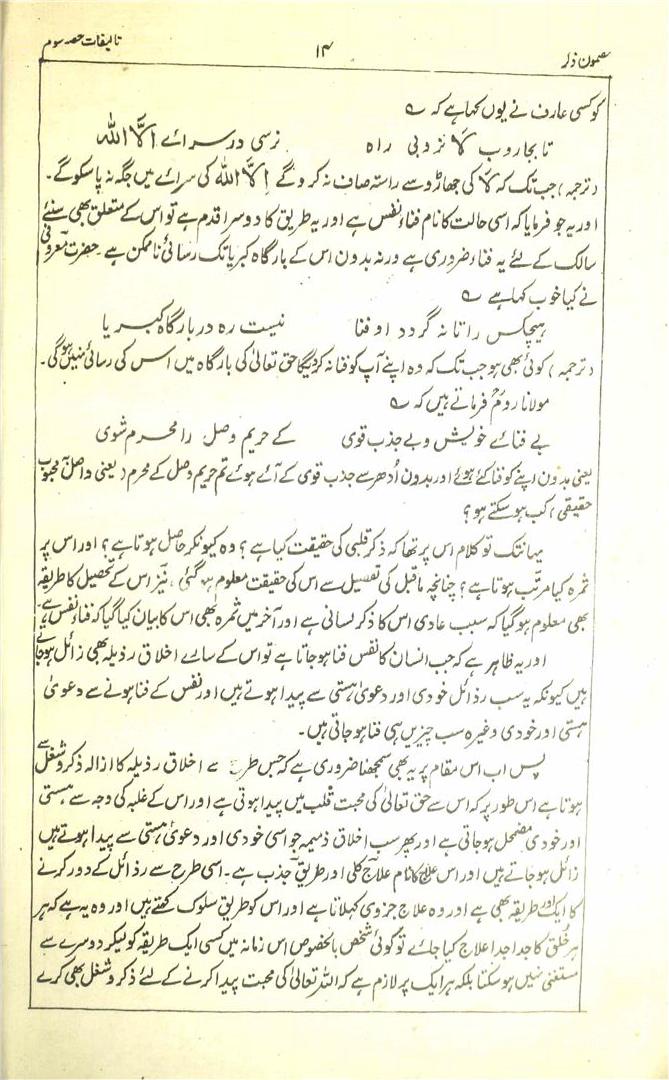 تالیفات حصہ سوم
۱۴
مضمون ذکر
کو کسی عارف نے یوں کہا ہے کہ ؎
تا بجاروب لَا نروبی راہ نرسی در سرائے الَّا اللہ
(ترجمہ) جب تک کہ لَا کی جھاڑو سے راستہ صاف نہ کرو گے الَّا اللہ کی سرائے میں جگہ نہ پا سکو گے۔
اور یہ جو فرمایا کہ اسی حالت کا نام فناءِ نفس ہے اور یہ طریق کا دوسرا قدم ہے تو اس کے متعلق بھی سنئے
سالک کے لئے یہ فناء ضروری ہے ورنہ بدون اس کے بارگاہ کبریا تک رسائی ناممکن ہے۔ حضرت
نے کیا خوب کہا ہے ؎
ہیچکس را تا نہ گردد او فنا نیست رہ در بارگاہ کبریا
(ترجمہ) کوئی بھی ہو جب تک کہ وہ اپنے آپ کو فنا نہ کردیگا حق تعالیٰ کی بارگاہ میں اس کی رسائی نہیں ہوگی۔
مولانا رومؒ فرماتے ہیں کہ ؎
بے فنائے خویش و بے جذب قوی کے حریم وصل را محرم شوی
یعنی بدون اپنے کو فنا کئے ہوئے اور بدون اُدھر سے جذب قوی کے آئے ہوئے تم حریم وصل کے محرم (یعنی واصل محبوب
حقیقی) کب ہو سکتے ہو؟
یہانتک تو کلام اس پر تھا کہ ذکر قلبی کی حقیقت کیا ہے؟ وہ کیونکر حاصل ہوتا ہے؟ اور اس پر
ثمرہ کیا مرتب ہوتا ہے؟ چنانچہ ماقبل کی تفصیل سے اس کی حقیقت معلوم ہو گئی، نیز اس کے تحصیل کا طریقہ
بھی معلوم ہو گیا کہ سبب عادی اس کا ذکر لسانی ہے اور آخر میں ثمرہ بھی اس کا بیان کیا گیا کہ فناءِ نفس ہے۔
اور یہ ظاہر ہے کہ جب انسان کا نفس فنا ہو جاتا ہے تو اس کے سارے اخلاق رذیلہ بھی زائل ہو جاتے
ہیں کیونکہ یہ سب رذائل خودی اور دعوئ ہستی سے پیدا ہوتے ہیں اور نفس کے فنا ہونے سے دعویٰ
ہستی اور خودی وغیرہ سب چیزیں ہی فنا ہو جاتی ہیں۔
پس اب اس مقام پر یہ بھی سمجھنا ضروری ہے کہ جس طرح سے اخلاق رذیلہ کا ازالہ ذکر و شغل سے
ہوتا ہے اس طور پر کہ اس سے حق تعالیٰ کی محبت قلب میں پیدا ہوتی ہے اور اس کے غلبہ کی وجہ سے ہستی
اور خودی مضمحل ہو جاتی ہے اور پھر سب اخلاق ذمیمہ جو اسی خودی اور دعوئ ہستی سے پیدا ہوتے ہیں
زائل ہو جاتے ہیں اور اس علاج کا نام علاج کلی اور طریق جذب ہے۔ اسی طرح سے رذائل کے دور کرنے
کا ایک اور طریقہ بھی ہے اور وہ علاج جزوی کہلاتا ہے اور اس کو طریق سلوک کہتے ہیں اور وہ یہ ہے کہ ہر
ہر خُلق کا جدا جدا علاج کیا جائے تو کوئی شخص بالخصوص اس زمانہ میں کسی ایک طریقہ کو لیکر دوسرے سے
مستغنی نہیں ہو سکتا بلکہ ہر ایک پر لازم ہے کہ اللہ تعالیٰ کی محبت پیدا کرنے کے لئے ذکر و شغل بھی کرے